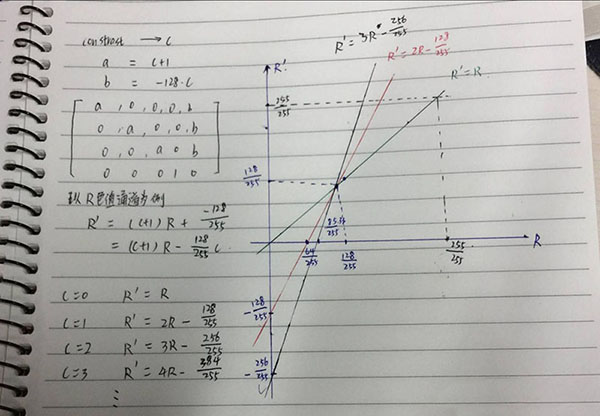 constrast → c
a = c+1
b = -128·c
a , 0 , 0 , 0 , b
0 , a , 0 , 0 , b
0 , 0 , a 0 b
0 0 0 1 0
以R色值通道为例
R' = (c+1)R + -128/255
= (c+1)R - 128/255 c
c=0 R' = R
c=1 R' = 2R - 128/255
c=2 R' = 3R - 256/255
c=3 R' = 4R - 384/255
⋮
R' = 3R - 256/255
R' = 2R - 128/255
R' = R
R'
255/255
128/255
64/255
128/255
255/255
R
-128/255
-256/255